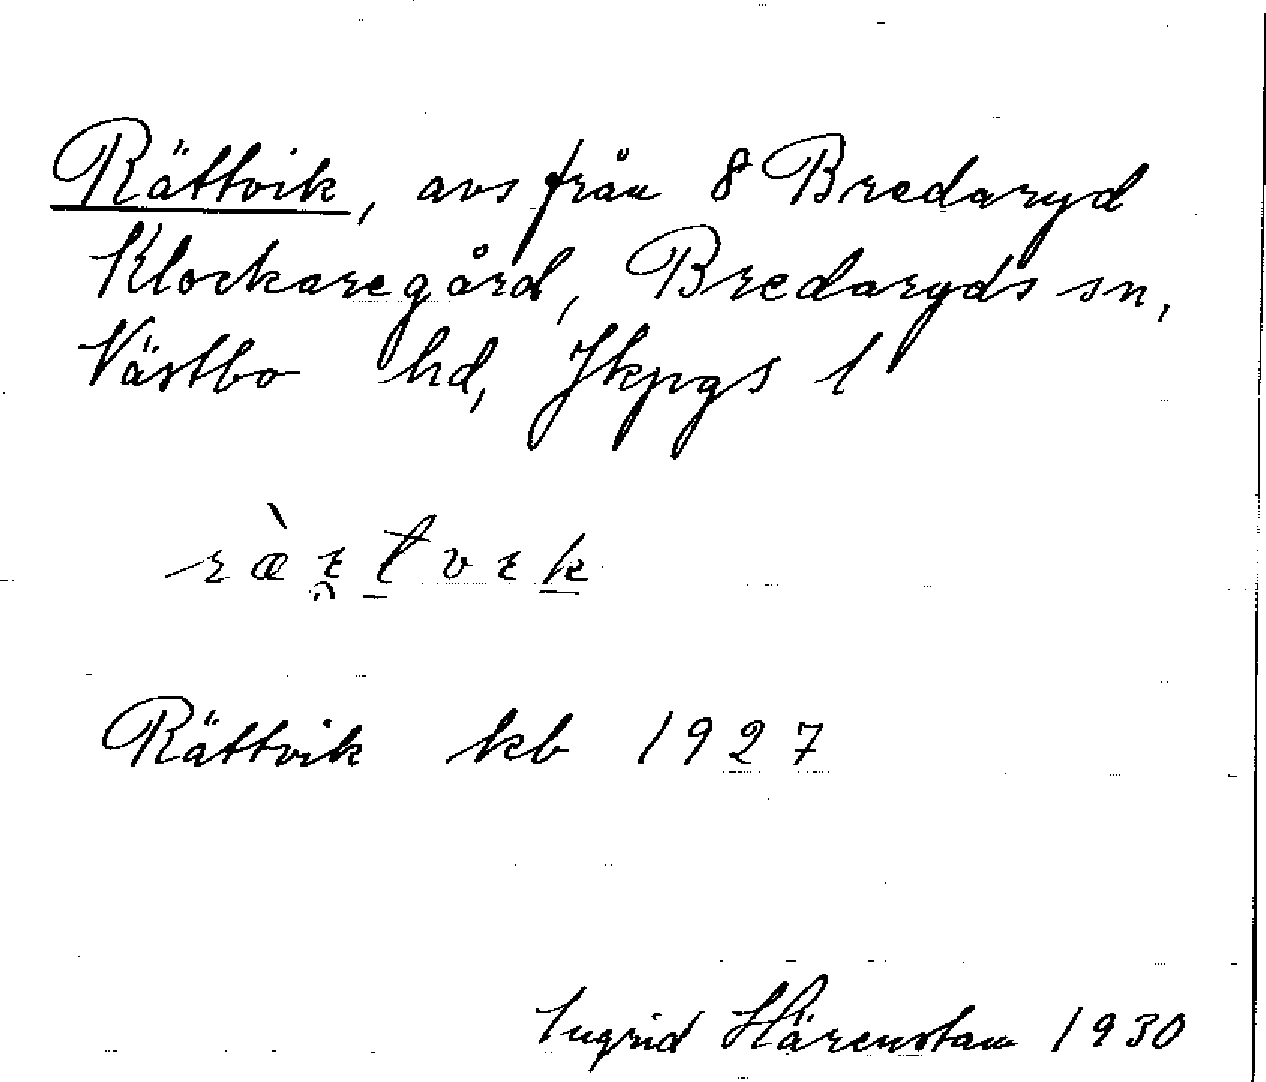 Rättvik, avs från 8 Bredaryd
Klockaregård, Bredaryds sn,
Västbo hd, Jkpgs l
Rättvik kb 1927
Ingrid Härenstam 1930